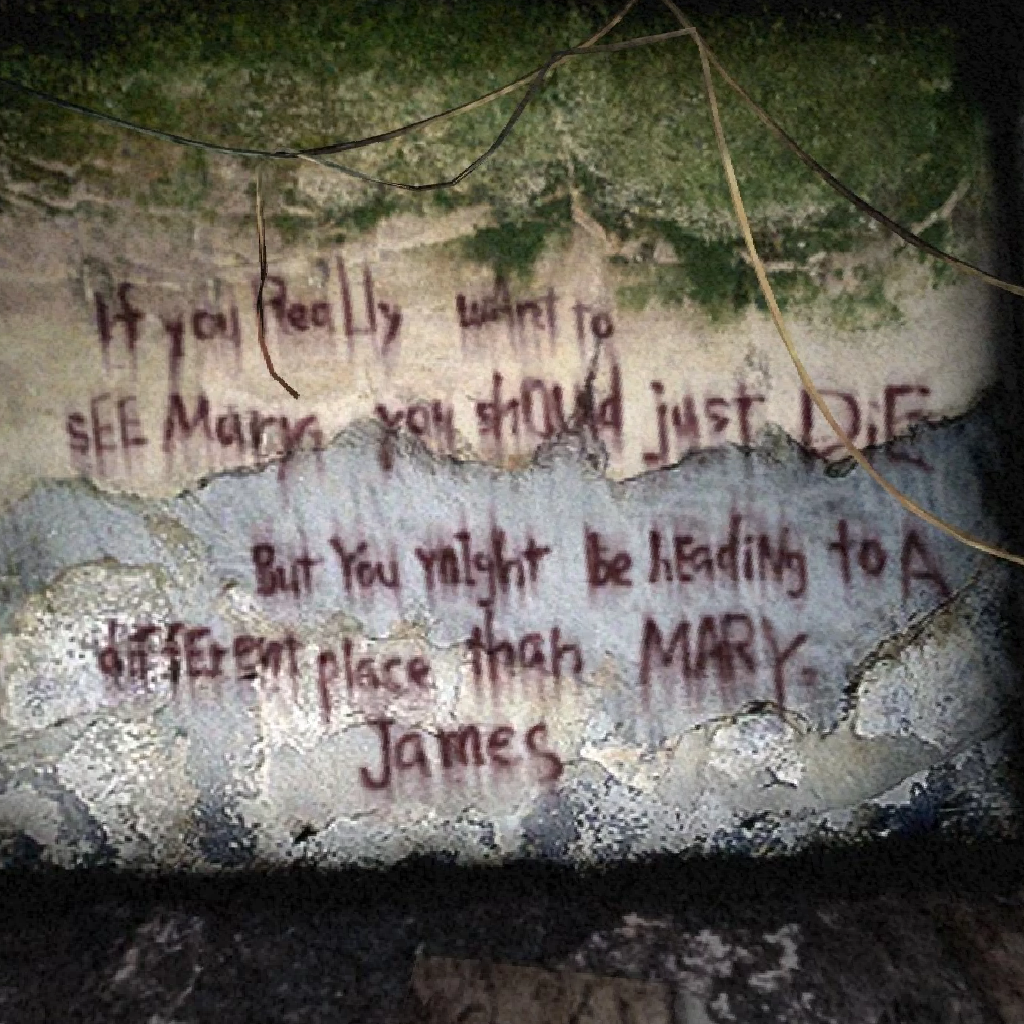 If you Really want to
SEE Mary, you shOUld just DiE
But You mIght be hEadiNg to A
diffErEnt place than MARY.
James